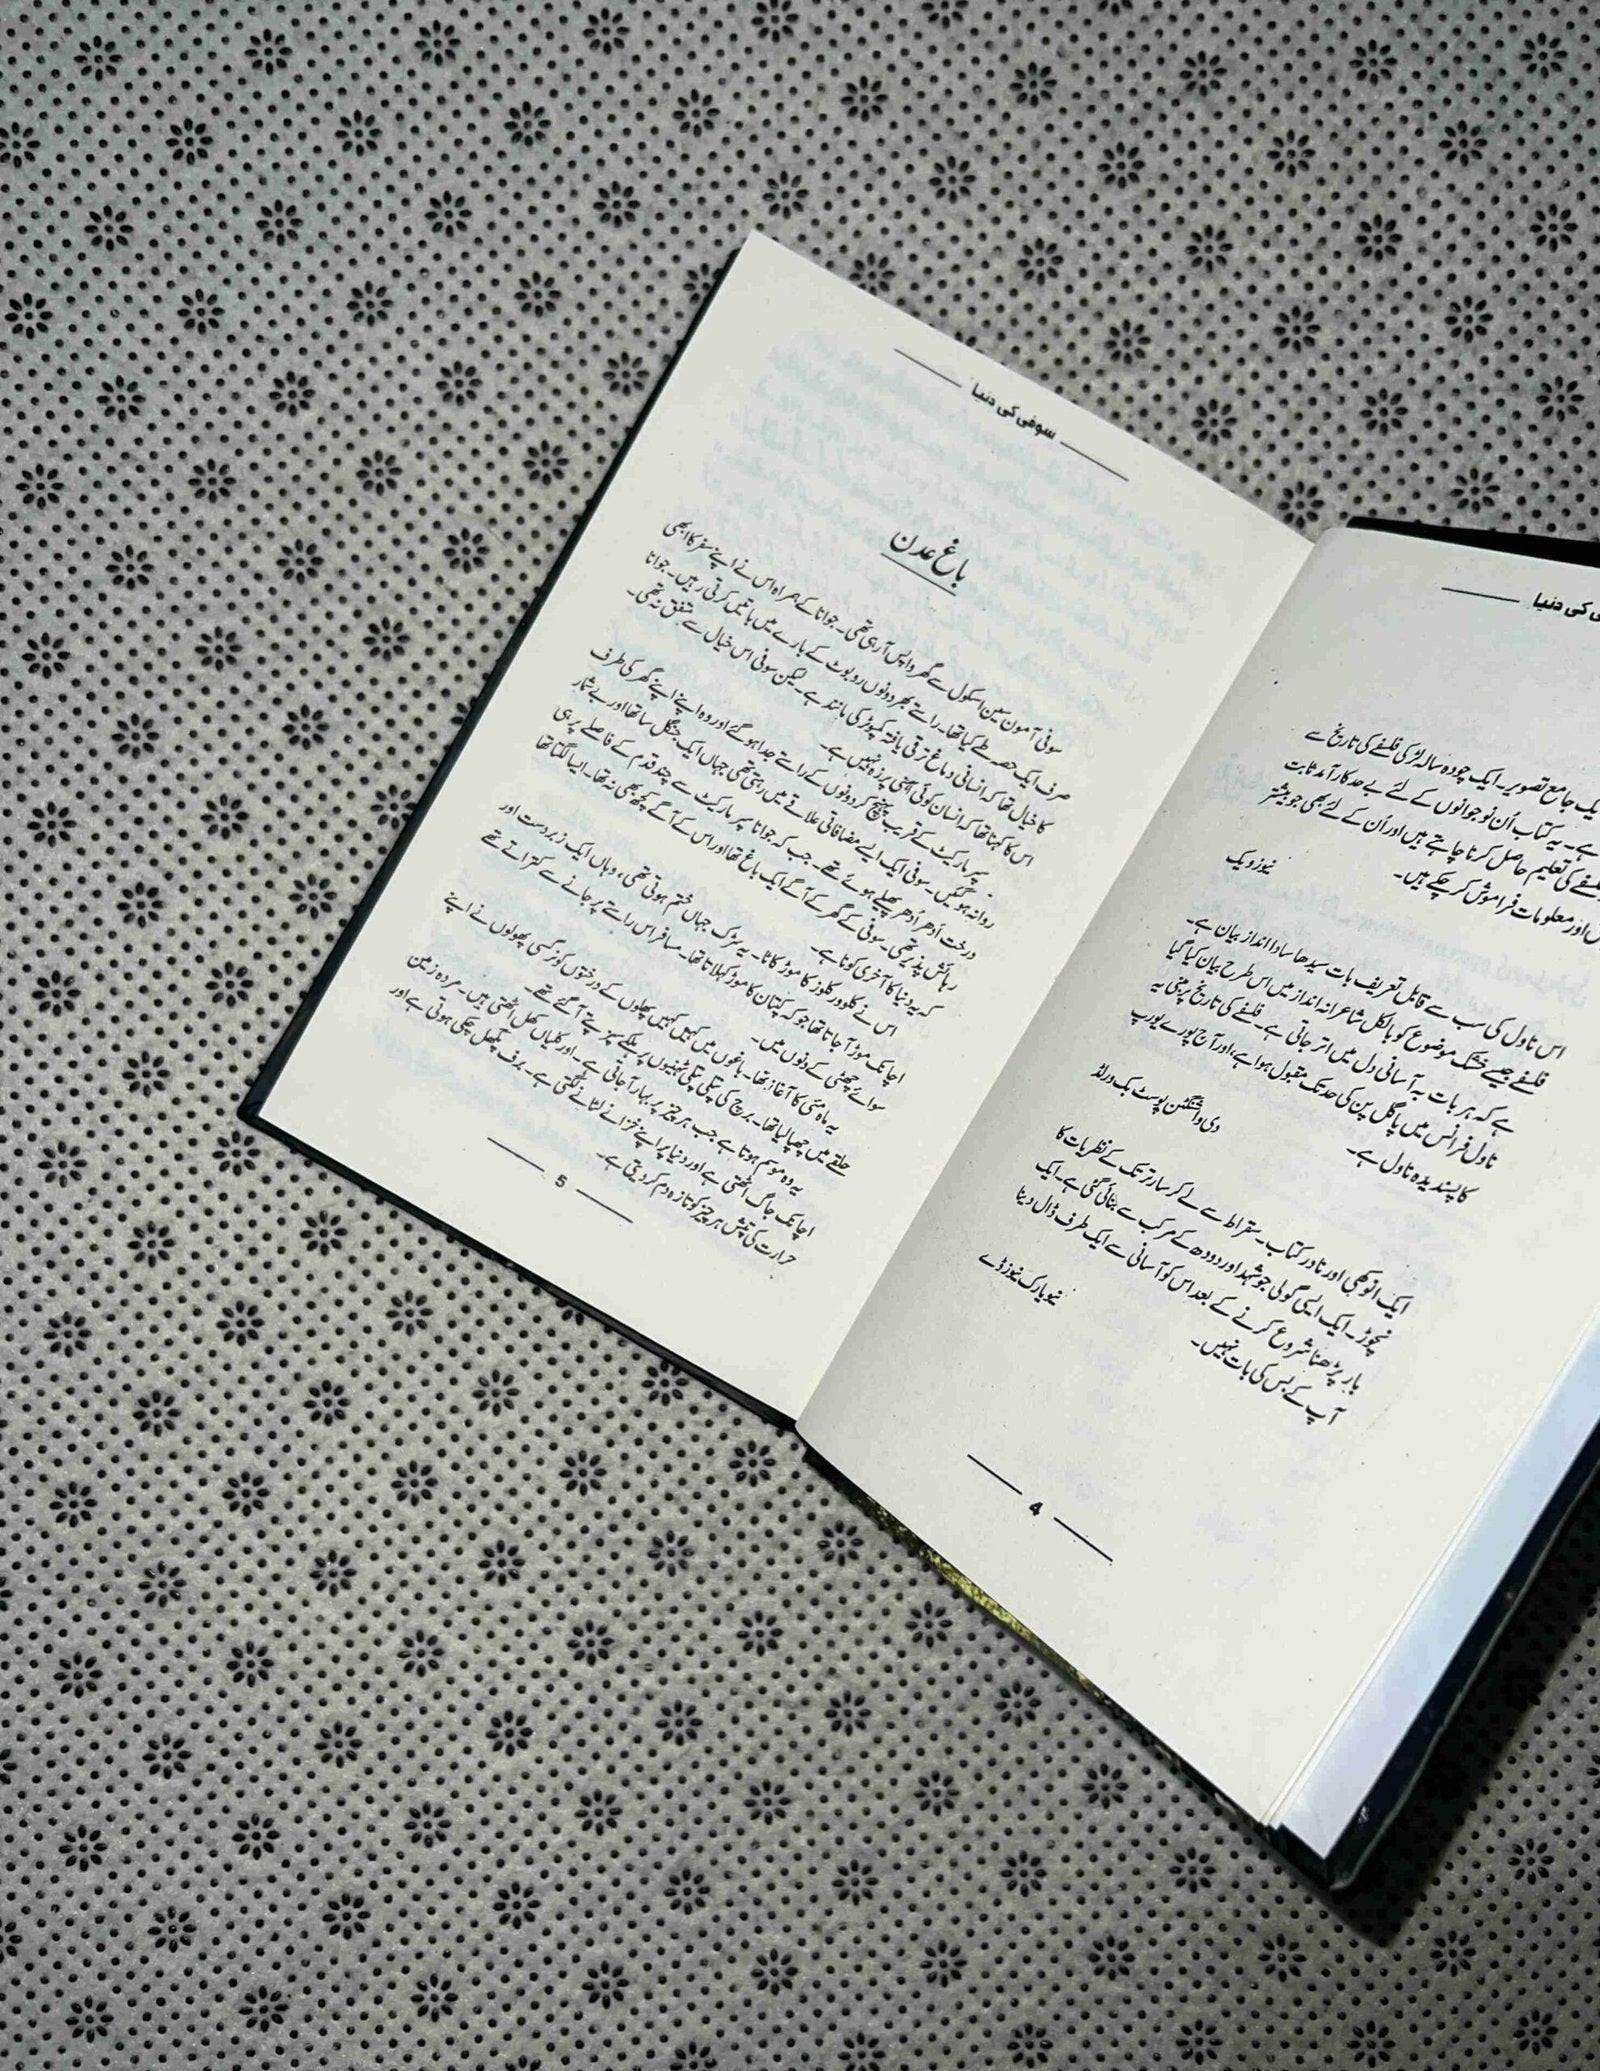 کی دنیا
یک جامع تصویر۔ ایک چودہ سالہ لڑکی فلسفے کی تاریخ سے
ہے۔ یہ کتاب اُن نوجوانوں کے لئے بے حد کارآمد ثابت
فلسفے کی تعلیم حاصل کرنا چاہتے ہیں اور اُن کے لئے بھی جو بیشتر
اور معلومات فراموش کر چکے ہیں۔
نیوز ویک
اس ناول کی سب سے قابل تعریف بات سیدھا سادا انداز بیان ہے۔
فلسفے جیسے خشک موضوع کو بالکل شاعرانہ انداز میں اس طرح بیان کیا گیا
ہے کہ ہر بات بہ آسانی دل میں اتر جاتی ہے۔ فلسفے کی تاریخ پر مبنی یہ
ناول فرانس میں پاگل پن کی حد تک مقبول ہوا ہے، اور آج پورے یورپ
کا پسندیدہ ناول ہے۔
دی واشنگٹن پوسٹ بک ورلڈ
ایک انوکھی اور نادر کتاب۔ سقراط سے لے کر سارتر تک کے نظریات کا
نچوڑ۔ ایک ایسی گولی جو شہد اور دودھ کے مرکب سے بنائی گئی ہے۔ ایک
بار پڑھنا شروع کرنے کے بعد اس کو آسانی سے ایک طرف ڈال دینا
آپ کے بس کی بات نہیں۔
نیویارک نیوز ڈے
4
سوفی کی دنیا
باغ عدن
سوفی آمون سین اسکول سے گھر واپس آ رہی تھی۔ جوانا کے ہمراہ اس نے اپنے سفر کا ابھی
صرف ایک حصہ طے کیا تھا۔ راستے بھر دونوں روبوٹ کے بارے میں باتیں کرتی رہیں۔ جوانا
کا خیال تھا کہ انسانی دماغ ترقی یافتہ کمپیوٹر کی مانند ہے۔ لیکن سوفی اس خیال سے متفق نہ تھی۔
اس کا کہنا تھا کہ انسان کوئی آہنی پرزہ نہیں ہے۔
سپر مارکیٹ کے قریب پہنچ کر دونوں کے راستے جدا ہو گئے اور وہ اپنے اپنے گھر کی طرف
روانہ ہو گئیں۔ سوفی ایک ایسے مضافاتی علاقے میں رہتی تھی جہاں ایک جنگل سا تھا اور بے شمار
درخت اُدھر اُدھر پھیلے ہوئے تھے۔ جب کہ جوانا سپر مارکیٹ سے چند قدم کے فاصلے پر ہی
رہائش پذیر تھی۔ سوفی کے گھر کے آگے ایک باغ تھا اور اس کے آگے کچھ بھی نہ تھا۔ ایسا لگتا تھا
کہ یہ دنیا کا آخری کونا ہے۔
اس نے کلوور کلوز کا موڑ کاٹا۔ یہ سڑک جہاں ختم ہوتی تھی، وہاں ایک زبردست اور
اچانک موڑ آ جاتا تھا جو کہ کپتان کا موڑ کہلاتا تھا۔ مسافر اس راستے پر جانے سے کتراتے تھے
سوائے چھٹی کے دنوں میں۔
یہ ماہ مئی کا آغاز تھا۔ باغوں میں کہیں کہیں پھلوں کے درختوں کو نرگسی پھولوں نے اپنے
حلقے میں چھپا لیا تھا۔ برچ کی پتلی پتلی ٹہنیوں پر ہلکے سبز پتے آ گئے تھے۔
یہ وہ موسم ہوتا ہے جب ہر چیز پر بہار آ جاتی ہے۔ اور کلیاں کھل اٹھتی ہیں۔ مردہ زمین
اچانک جاگ اٹھتی ہے اور دنیا پر اپنے خزانے لٹانے لگتی ہے۔ برف پگھل چکی ہوتی ہے اور
حرارت کی تپش ہر چیز کو تازہ دم کر دیتی ہے۔
5